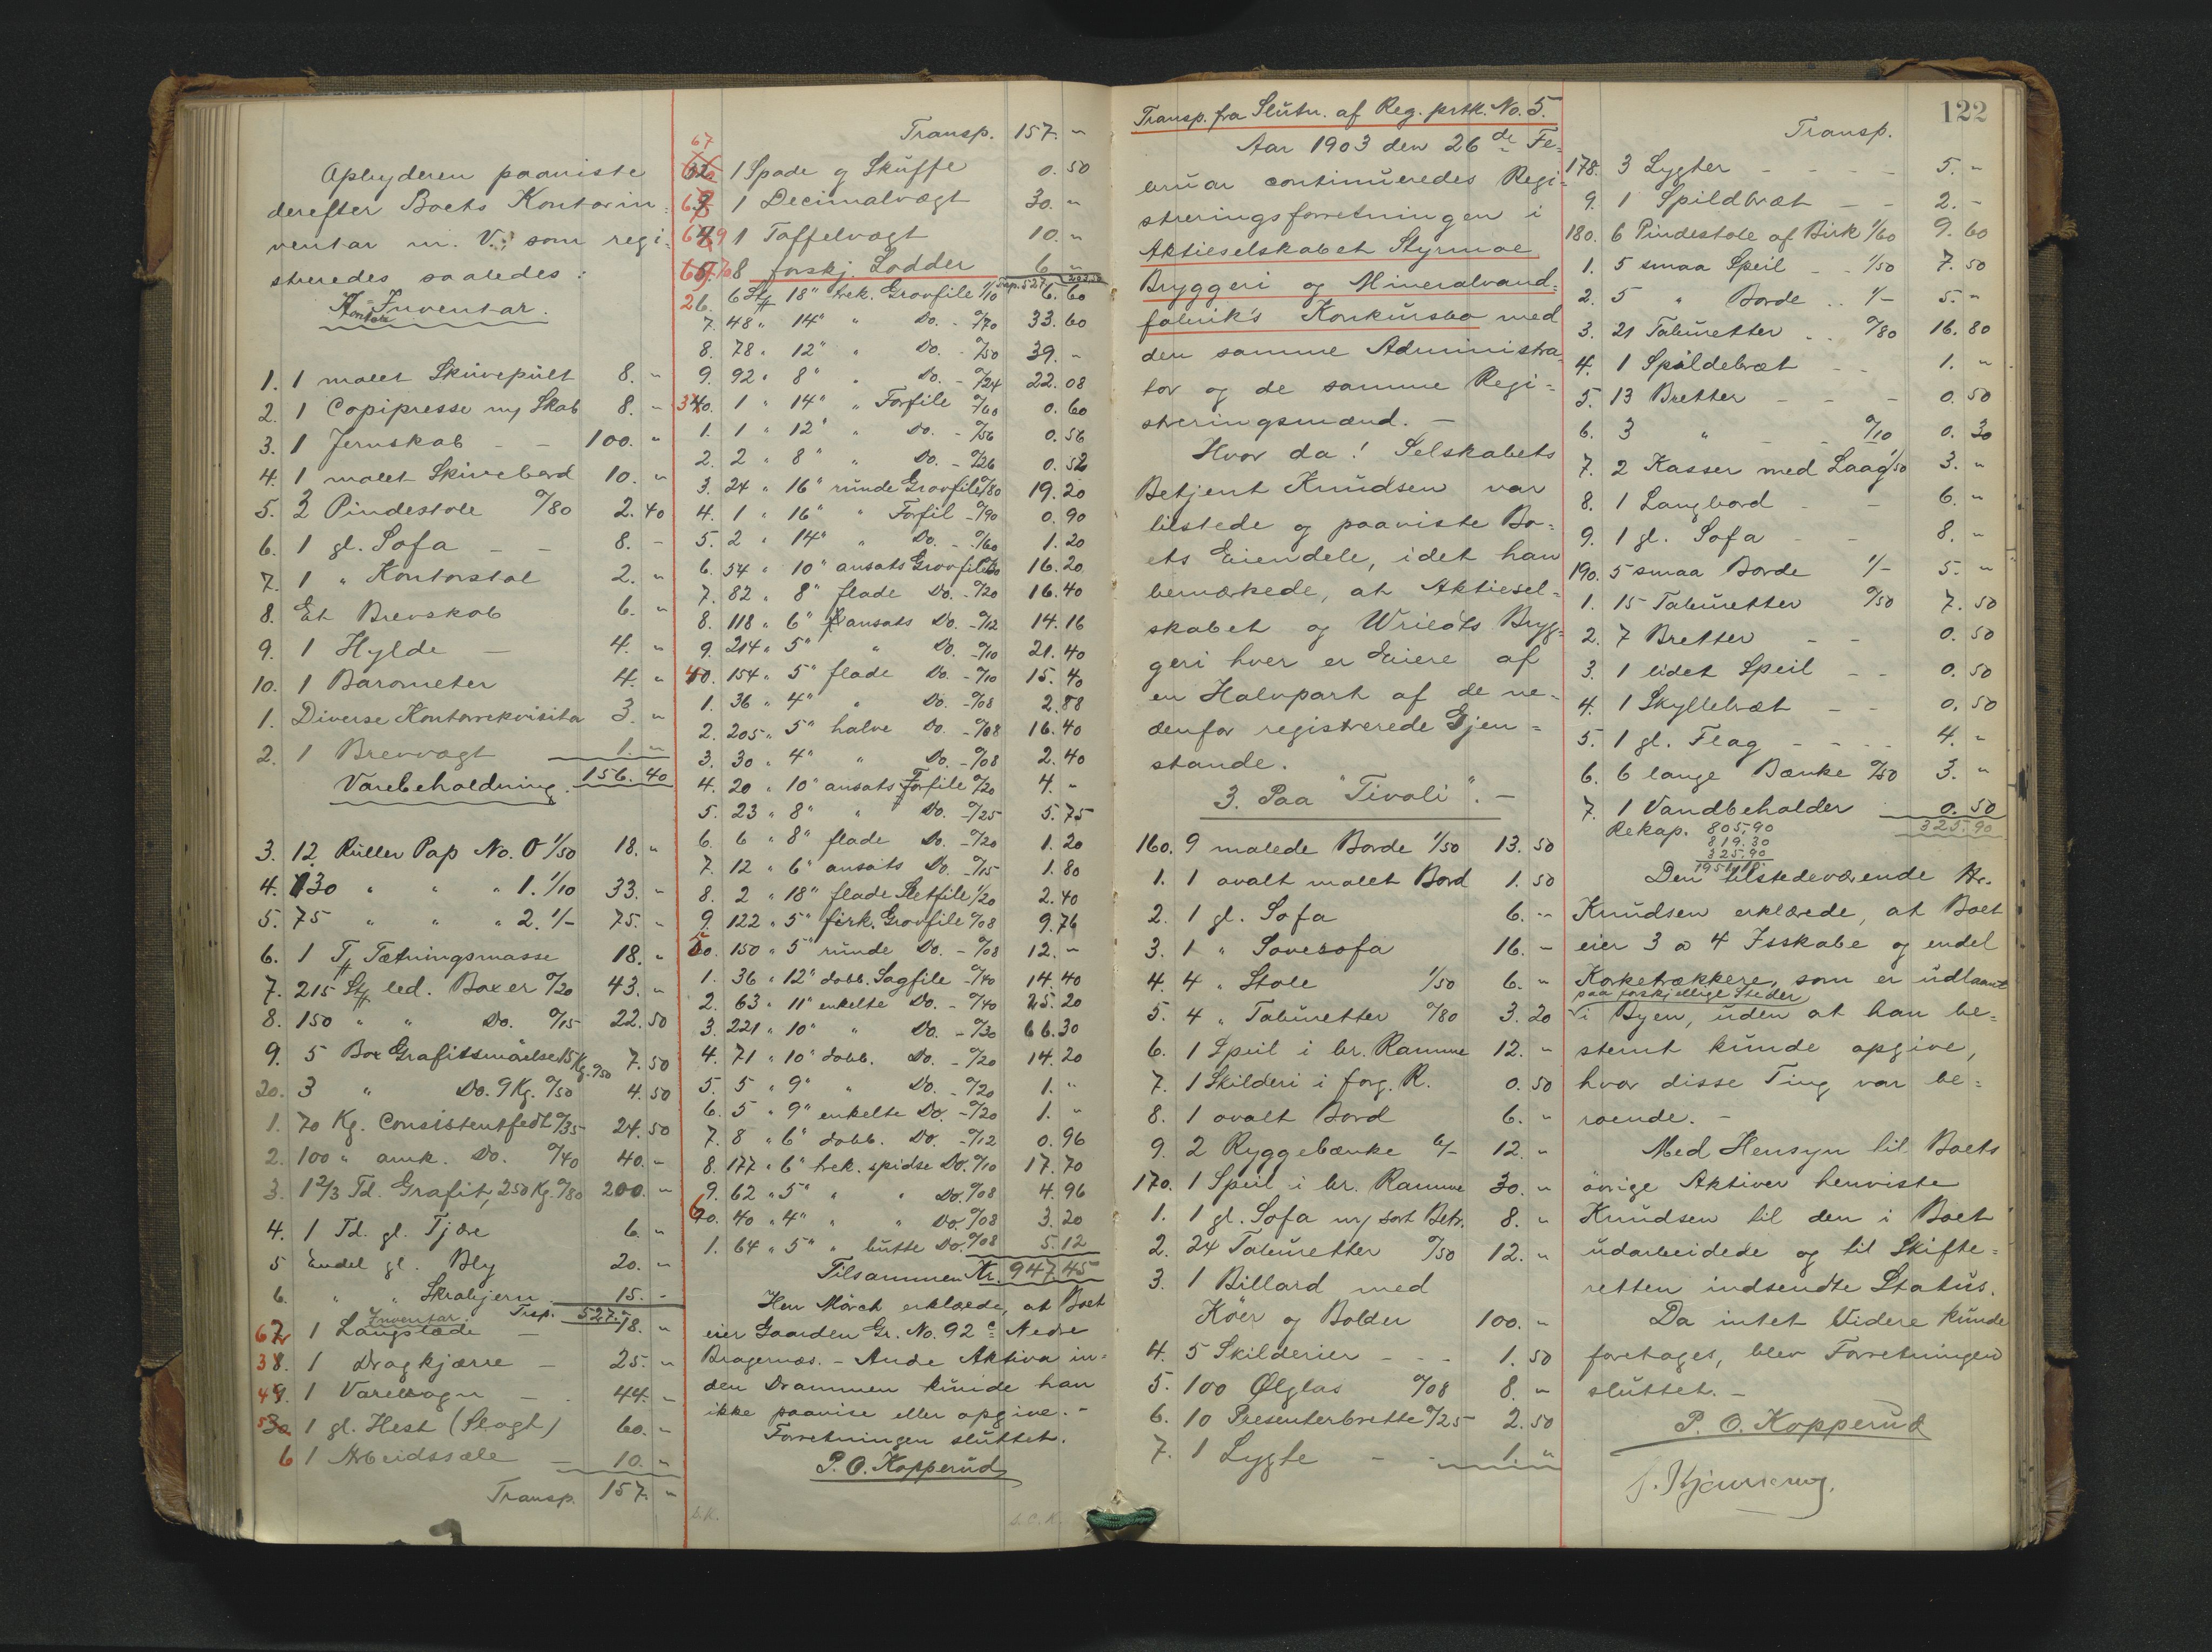 Opbyderen paaviste
derefter Boets Kontorin=
ventar m. V., som regi=
streredes saaledes:
Kontor Inventar.
1. 1 malet Skrivepult 8. "
2. 1 Copipresse m/ Skab 8. "
3. 1 Jernskab - - 100. "
4. 1 malet Skrivebord 10. "
5. 3 Pindestole 0/80 2.40
6. 1 gl. Sofa - - 8. -
7. 1 " Kontorstol 2. "
8. Et Brevskab 6. "
9. 1 Hylde - 4. "
10. 1 Barometer 4. "
1. Diverse Kontorrekvisita 3. "
2. 1 Brevvægt 1. "
156.40
Varebeholdning.
3. 12 Ruller Pap No. 0 1/50 18. "
4. 30 " " " 1. 1/10 33. "
5. 75 " " " 2. 1/- 75. "
6. 1 Tætningsmasse 18. "
7. 215 Stk led. Boxer 0/20 43. "
8. 150 " " Do. 0/15 22.50
9. 5 Box Grafitsmörelse 15 Kg. 0/50 7.50
20. 3 " Do. 9 Kg. 0/50 4.50
1. 70 Kg. Consistentfedt 0/35 24.50
2. 100 " amk. Do. 0/40 40. -
3. 1 2/3 Td. Grafit, 250 Kg. 0/80 200. -
4. 1 Td. gl. Tjære 6. "
5 Endel gl. Bly 20. "
6. " " Skrabjern 15. -
Inventar. Trsp. 527. "
67 1 Langslæde - 18. "
38. 1 Dragkjærre - 25. "
49. 1 Varevogn - 44. "
50 1 gl. Hest (Slagt) 60. "
6 1 Arbeidssæle - 10. "
Transp. 157. "
Transp. 157. "
67
1 Spade og Skuffe 0.50
68 1 Decimalvægt 30. "
69 1 Taffelvægt 10. "
70 8 forskj. Lodder 6 "
26. 6 Stk 18" trek. Grovfile 1/10 6.60
7. 48 " 14" " Do. - 0/70 33.60
8. 78 " 12" " Do. - 0/50 39. -
9. 92 " 8" " Do. - 0/24 22.08
30. 1 " 14" " Forfile 0/60 0.60
1. 1 " 12" " Do. - 0/56 0.56
2. 2 " 8" " Do. - 0/26 0.52
3. 24 " 16" runde Grovfile 0/80 19.20
4. 1 " 16" " Forfil - 0/90 0.90
5. 2 " 14" " Do. - 0/60 1.20
6. 54 " 10" ansats Grovfile 0/30 16.20
7. 82 " 8" flade Do. - 0/20 16.40
8. 118 " 6" ansats Do. - 0/12 14.16
9. 214 " 5" " Do. - 0/10 21.40
40. 154 " 5" flade Do. - 0/10 15.40
1. 36 " 4" " Do. - 0/08 2.88
2. 205 " 5" halve Do. - 0/08 16.40
3. 30 " 4" " Do. - 0/08 2.40
4. 20 " 10" ansats Forfile 0/20 4. -
5. 23 " 8" " Do. - 0/25 5.75
6. 6 " 8" flade Do. - 0/20 1.20
7. 12 " 6" ansats Do. - 0/15 1.80
8. 2 " 18" flade Sletfile 1/20 2.40
9. 122 " 5" firk. Grovfile 0/08 9.76
50. 150 " 5" runde Do. - 0/08 12. -
1. 36 " 12" dobb. Sagfile - 0/40 14.40
2. 63 " 11" enkelte Do. - 0/40 25.20
3. 221 " 10" " Do. - 0/30 66.30
4. 71 " 10" dobb. Do. - 0/20 14.20
5. 5 " 9" " Do. - 0/20 1. "
6. 5 " 9" enkelte Do. - 0/20 1. "
7. 8 " 6" dobb. Do. - 0/12 0.96
8. 177 " 6" trek. spidse Do. 0/10 17.70
9. 62 " 5" " " Do. 0/08 4.96
60. 40 " 4" " " Do. 0/08 3.20
1. 64 " 5" " butte Do. 0/08 5.12
Tilsammen Kr. 947.45
Herr Mörch erklærede, at Boet
eier Gaarden Gr. No. 92 c Nedre
Bragernæs. - Andre Aktiva in=
den Drammen kunde han
ikke paavise eller opgive. -
Forretningen sluttet.
P. O. Kopperud
Transp. fra Slutn. af Reg. prtk. No. 5.
Aar 1903 den 26de Fe=
bruar continueredes Regi=
streringsforretningen i
Aktieselskabet Styrmoe
Bryggeri og Mineralvand=
fabrik's Konkursbo med
den samme Administra=
tor og de samme Regi=
streringsmænd. -
Hvor da! Selskabets
Betjent Knudsen var
tilstede og paaviste Bo=
ets Eiendele, idet han
bemærkede, at Aktiesel=
skabet og Wriedts Bryg=
geri hver er Eiere af
en Halvpart af de ne=
denfor registrerede Gjen=
stande.
3. Paa "Tivoli". -
160. 9 malede Borde 1/50 13.50
1. 1 ovalt malet Bord 1.50
2. 1 gl. Sofa 6. "
3. 1 " Sovesofa 16. -
4. 4 " Stole 1/50 6. "
5. 4 " Taburetter 0/80 3.20
6. 1 Speil i br. Ramme 12. "
7. 1 Skilderi i forg. R. 0.50
8. 1 ovalt Bord 6. "
9. 2 Ryggebænke 6/- 12. "
170. 1 Speil i br. Ramme 30. "
1. 1 gl. Sofa m/ sort Betr. 8. "
2. 24 Taburetter 0/50 12. "
3. 1 Billard med
Köer og Bolder 100. "
4. 5 Skilderier - - - 1.50
5. 100 Ølglas 0/08 8. "
6. 10 Presenterbrette 0/25 2.50
7. 1 Lygte - - 1. "
122
Transp.
178. 3 Lygter - - - - 5. "
9. 1 Spildbræt - - 2. -
180. 6 Pindestole af Birk 1/60 9.60
1. 5 smaa Speil - - 1/50 7.50
2. 5 " Borde .. 1/- 5. "
3. 21 Taburetter .. 0/80 16.80
4. 1 Spildebræt - - 1. "
5. 13 Bretter - - - 0.50
6. 3 " - - 0/10 0.30
7. 2 Kasser med Laag 1/50 3. "
8. 1 Langbord - - 6. "
9. 1 gl. Sofa - - 8. "
190. 5 smaa Borde 1/- 5. "
1. 15 Taburetter 0/50 7.50
2. 7 Bretter - - 0.50
3. 1 lidet Speil - - 0.50
4. 1 Skyllebræt - - 0.50
5. 1 gl. Flag - - - - 4. "
6. 6 lange Bænke 0/50 3. "
7. 1 Vandbeholder 0.50
Rekap. 805.90 325.90
819.30
325.90
1951.10
Den tilstedeværende Hr.
Knudsen erklærede, at Boet
eier 3 a 4 Isskabe og endel
Korketrækkere, som er udlaant
paa forskjellige Steder
i Byen, uden at han be=
stemt kunde opgive,
hvor disse Ting var be=
roende. -
Med Hensyn til Boets
övrige Aktiver henviste
Knudsen til den i Boet
udarbeidede og til Skifte=
retten indsendte Status.
Da intet Videre kunde
foretages, blev Forretningen
sluttet. -
P. O. Kopperud